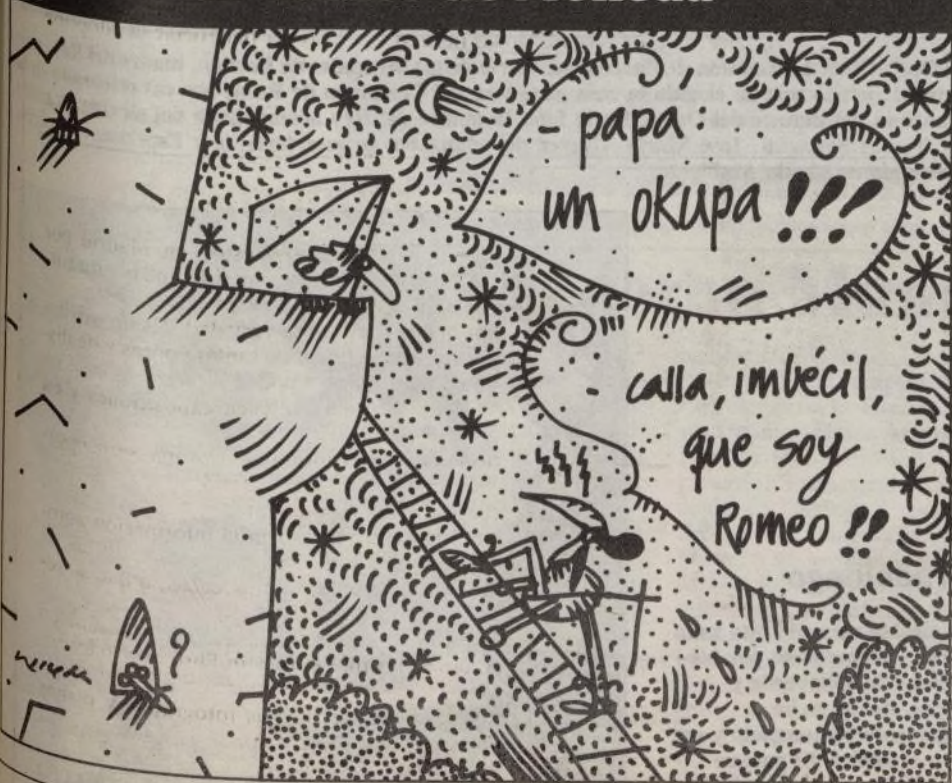 - papá:
un okupa !!!
- calla, imbécil,
que soy
Romeo !!
?